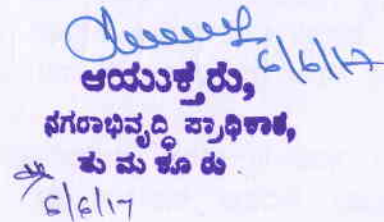 6/6/17
ಆಯುಕ್ತರು,
ನಗರಾಭಿವೃದ್ಧಿ ಪ್ರಾಧಿಕಾರ,
ತುಮಕೂರು
6/6/17